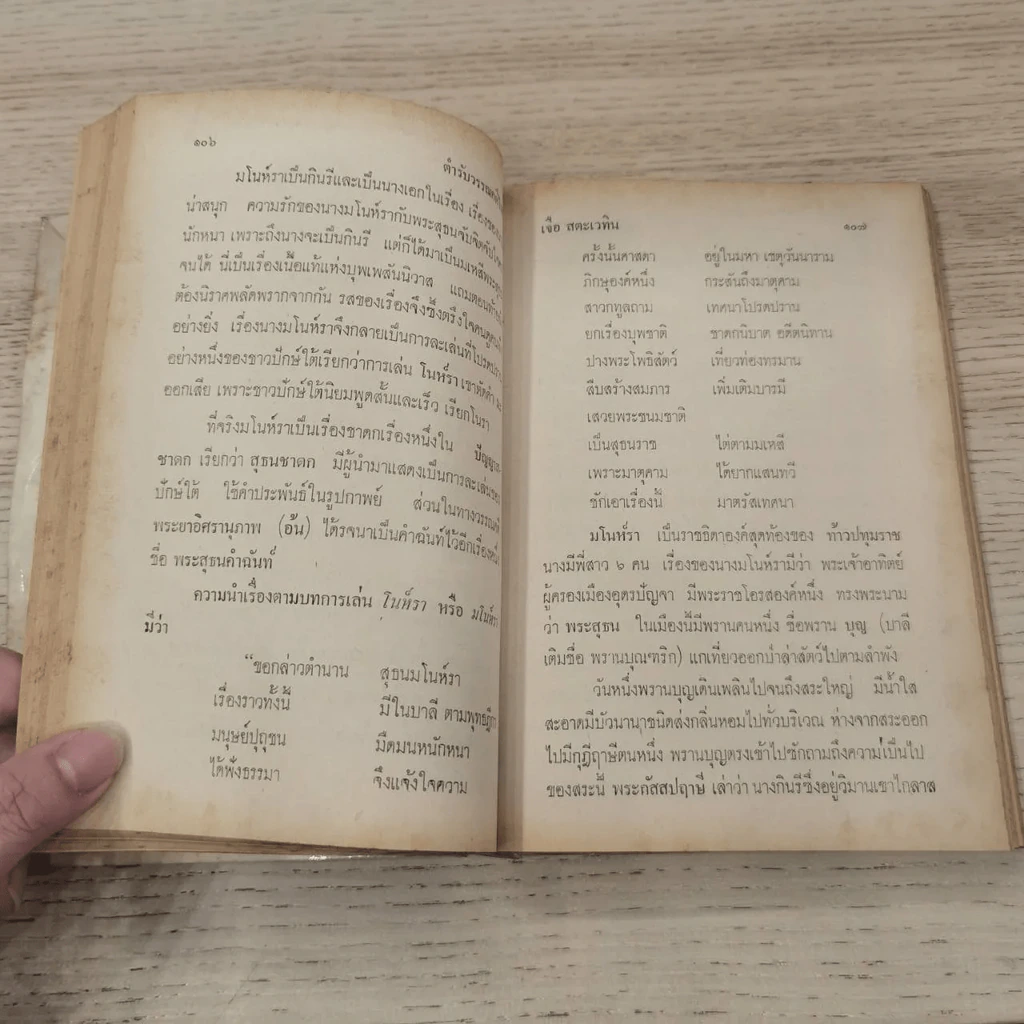 ๑๐๖
ตำรับวรรณคดี
มโนห์ราเป็นกินรีและเป็นนางเอกในเรื่อง
น่าสนุก ความรักของนางมโนห์รากับพระสุธนจับจิตจับใจ
นักหนา เพราะถึงนางจะเป็นกินรี แต่ก็ได้มาเป็นมเหสี
จนได้ นี่เป็นเรื่องเนื้อแท้แห่งบุพเพสันนิวาส แถมตอนท้าย
ต้องนิราศพลัดพรากจากกัน รสของเรื่องจึงซึ้งตรึงใจคน
อย่างยิ่ง เรื่องนางมโนห์ราจึงกลายเป็นการละเล่นที่โปรด
อย่างหนึ่งของชาวปักษ์ใต้เรียกว่าการเล่น โนห์รา เขาตัดคำ มะ
ออกเสีย เพราะชาวปักษ์ใต้นิยมพูดสั้นและเร็ว เรียกโนรา
ที่จริงมโนห์ราเป็นเรื่องชาดกเรื่องหนึ่งใน
ชาดก เรียกว่า สุธนชาดก มีผู้นำมาแสดงเป็นการละเล่นของ
ปักษ์ใต้ ใช้คำประพันธ์ในรูปกาพย์ ส่วนในทางวรรณคดี
พระยาอิศรานุภาพ (อ้น) ได้รจนาเป็นคำฉันท์ไว้อีกเรื่องหนึ่ง
ชื่อ พระสุธนคำฉันท์
ความนำเรื่องตามบทการเล่น โนห์รา หรือ มโนห์รา
มีว่า
“ขอกล่าวตำนาน สุธนมโนห์รา
เรื่องราวทั้งนี้ มีในบาลี ตามพุทธฎีกา
มนุษย์ปุถุชน มืดมนหนักหนา
ได้ฟังธรรมา จึงแจ้งใจความ
เจือ สตะเวทิน ๑๐๗
ครั้งนั้นศาสดา อยู่ในมหา เชตุวันนาราม
ภิกษุองค์หนึ่ง กระสันถึงมาตุคาม
สาวกทูลถาม เทศนาโปรดปราน
ยกเรื่องบุพชาติ ชาดกนิบาต อดีตนิทาน
ปางพระโพธิสัตว์ เที่ยวท่องทรมาน
สืบสร้างสมภาร เพิ่มเติมบารมี
เสวยพระชนมชาติ
เป็นสุธนราช ไต่ตามมเหสี
เพราะมาตุคาม ได้ยากแสนทวี
ชักเอาเรื่องนี้ มาตรัสเทศนา
มโนห์รา เป็นราชธิดาองค์สุดท้องของ ท้าวปทุมราช
นางมีพี่สาว ๖ คน เรื่องของนางมโนห์รามีว่า พระเจ้าอาทิตย์
ผู้ครองเมืองอุดรปัญจา มีพระราชโอรสองค์หนึ่ง ทรงพระนาม
ว่า พระสุธน ในเมืองนี้มีพรานคนหนึ่ง ชื่อพราน บุญ (บาลี
เดิมชื่อ พรานบุณฑริก) แกเที่ยวออกป่าล่าสัตว์ไปตามลำพัง
วันหนึ่งพรานบุญเดินเพลินไปจนถึงสระใหญ่ มีน้ำใส
สะอาดมีบัวนานาชนิดส่งกลิ่นหอมไปทั่วบริเวณ ห่างจากสระออก
ไปมีกุฎีฤาษีตนหนึ่ง พรานบุญตรงเข้าไปซักถามถึงความเป็นไป
ของสระนี้ พระกัสสปฤาษี เล่าว่า นางกินรีซึ่งอยู่วิมานเขาไกลาส